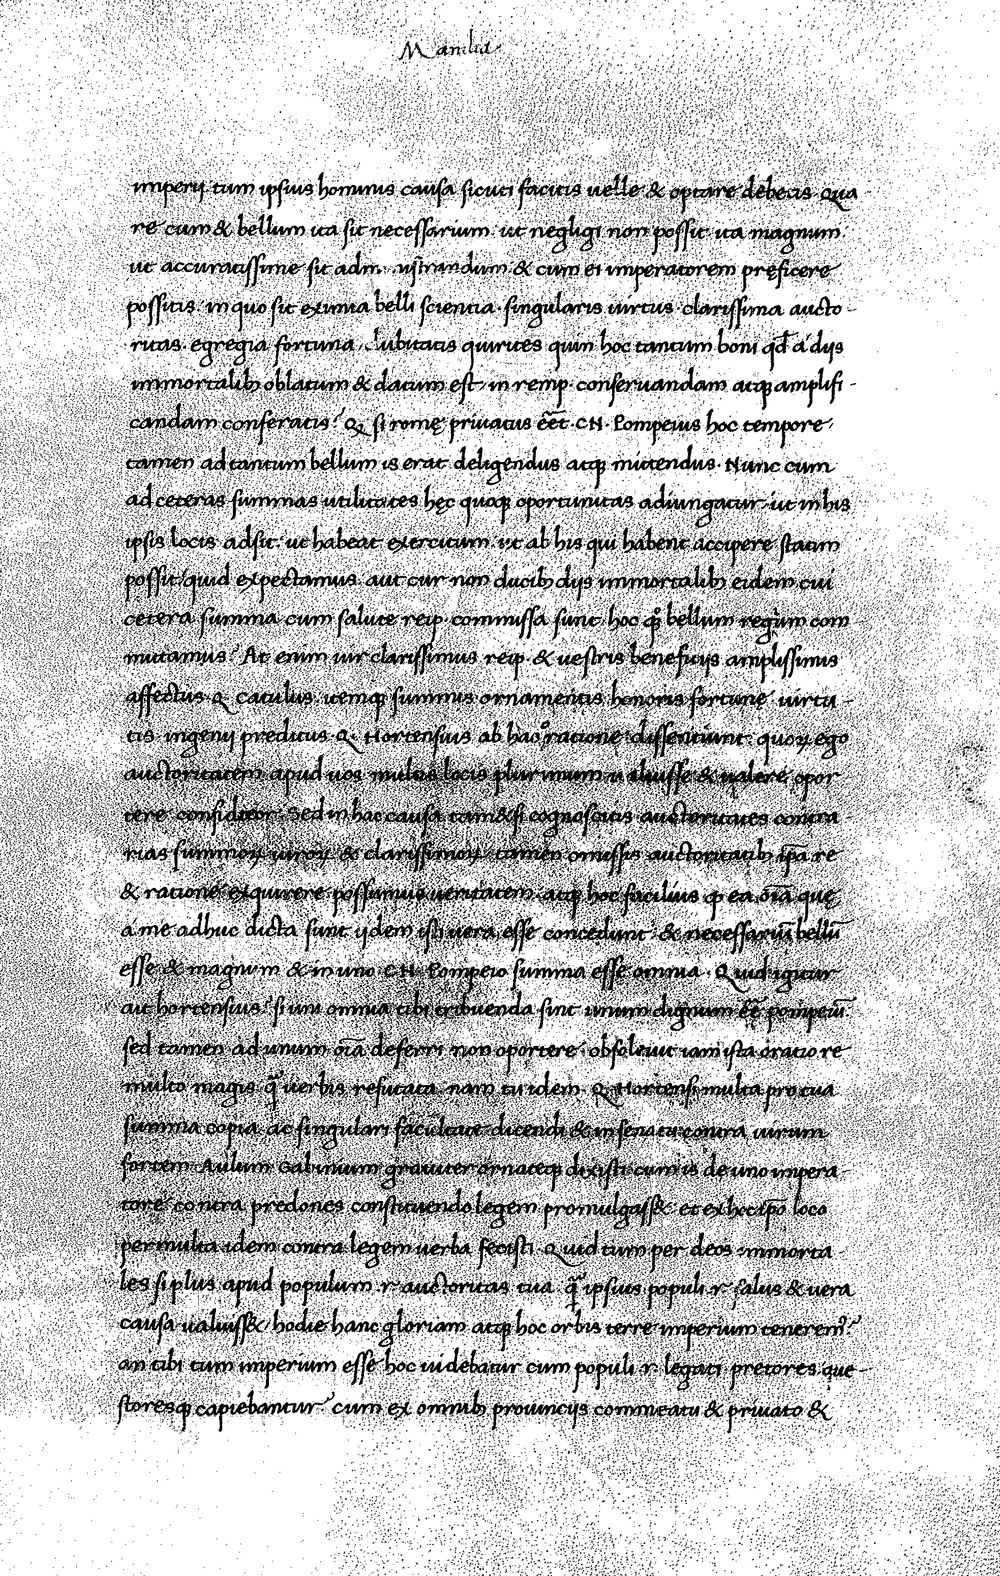 Manilia
imperij tum ipsius hominis causa sicuti facitis uelle & optare debetis Qua-
re cum & bellum ita sit necessarium: ut negligi non possit: ita magnum:
ut accuratissime sit administrandum & cum ei imperatorem pręficere
possitis: in quo sit eximia belli scientia. singularis uirtus. clarissima aucto-
ritas. egregia fortuna, dubitatis quirites quin hoc tantum boni qd̄ a dijs
immortalib; oblatum & datum est, in remp. conseruandam atq; amplifi-
candam conferatis? Q. si romę priuatus eēt. CN. Pompeius hoc tempore,
tamen ad tantum bellum is erat deligendus atq; mittendus. Nunc cum
ad ceteras summas utilitates hęc quoq; oportunitas adiungatur, ut in his
ipsis locis adsit: ut habeat exercitum: ut ab his qui habent accipere statim
possit, quid expectamus. aut cur non ducib; dijs immortalib; eidem cui
cetera summa cum salute reip. commissa sunt: hoc qͦ; bellum regium com-
mittamus? At enim uir clarissimus reip. & uestris beneficijs amplissimis
affectus Q. catulus. itemq; summis ornamentis honoris fortunę uirtu-
tis ingenij preditus Q. Hortensius ab hac ratione dissentiunt. quoꝝ ego
auctoritatem apud uos multis locis plurimum ualuisse & ualere opor-
tere confiteor. Sed in hac causa tam&si cognoscitis auctoritates contra-
rias summoꝝ uiroꝝ & clarissimoꝝ tamen omissis auctoritatib; ip̄a re
& ratione exquirere possumus ueritatem. atq; hoc facilius q ea oīa quę
a me adhuc dicta sunt ijdem isti uera esse concedunt. & necessariū bellū
esse & magnum & in uno CN. Pompeio summa esse omnia. Quid igitur
ait hortensius? si uni omnia tibi tribuenda sint unum dignum eē pompeiū.
sed tamen ad unum oīa deferri non oportere. obsoleuit iam ista oratio re
multo magis q̄ uerbis refutata. nam tu idem. Q. Hortensi multa pro tua
summa copia ac singulari facultate dicendi & in senatu contra uirum
fortem Aulum Gabinium grauiter ornateq; dixisti cum is de uno impera-
tore contra predones constituendo legem promulgass& et ex hoc ip̄o loco
permulta idem contra legem uerba fecisti. Quid tum per deos immorta-
les si plus apud populum r. auctoritas tua q̄ ipsius populi r. salus & uera
causa ualuiss& hodie hanc gloriam atq; hoc orbis terre imperium teneremꝰ?
an tibi tum imperium esse hoc uidebatur cum populi r. legati pretores que-
storesq; capiebantur? cum ex omnib; prouincijs commeatu & priuato &